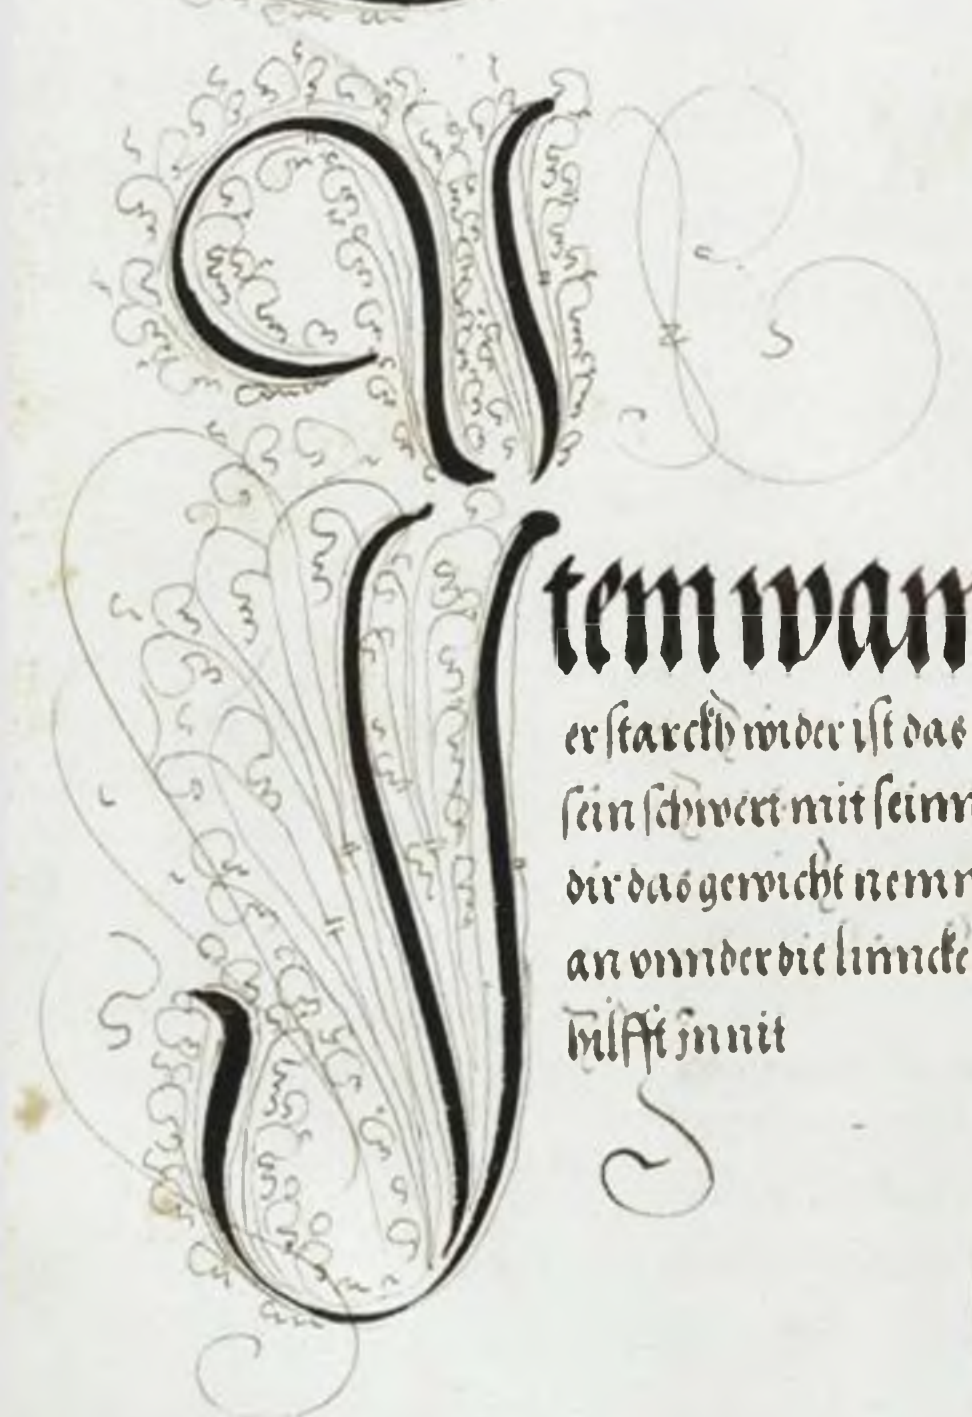 Item wan
er starckh wider ist das
sein schwert mit seinn
dir das gewicht nemn
an vnnder die linncke
hilfft jnnit